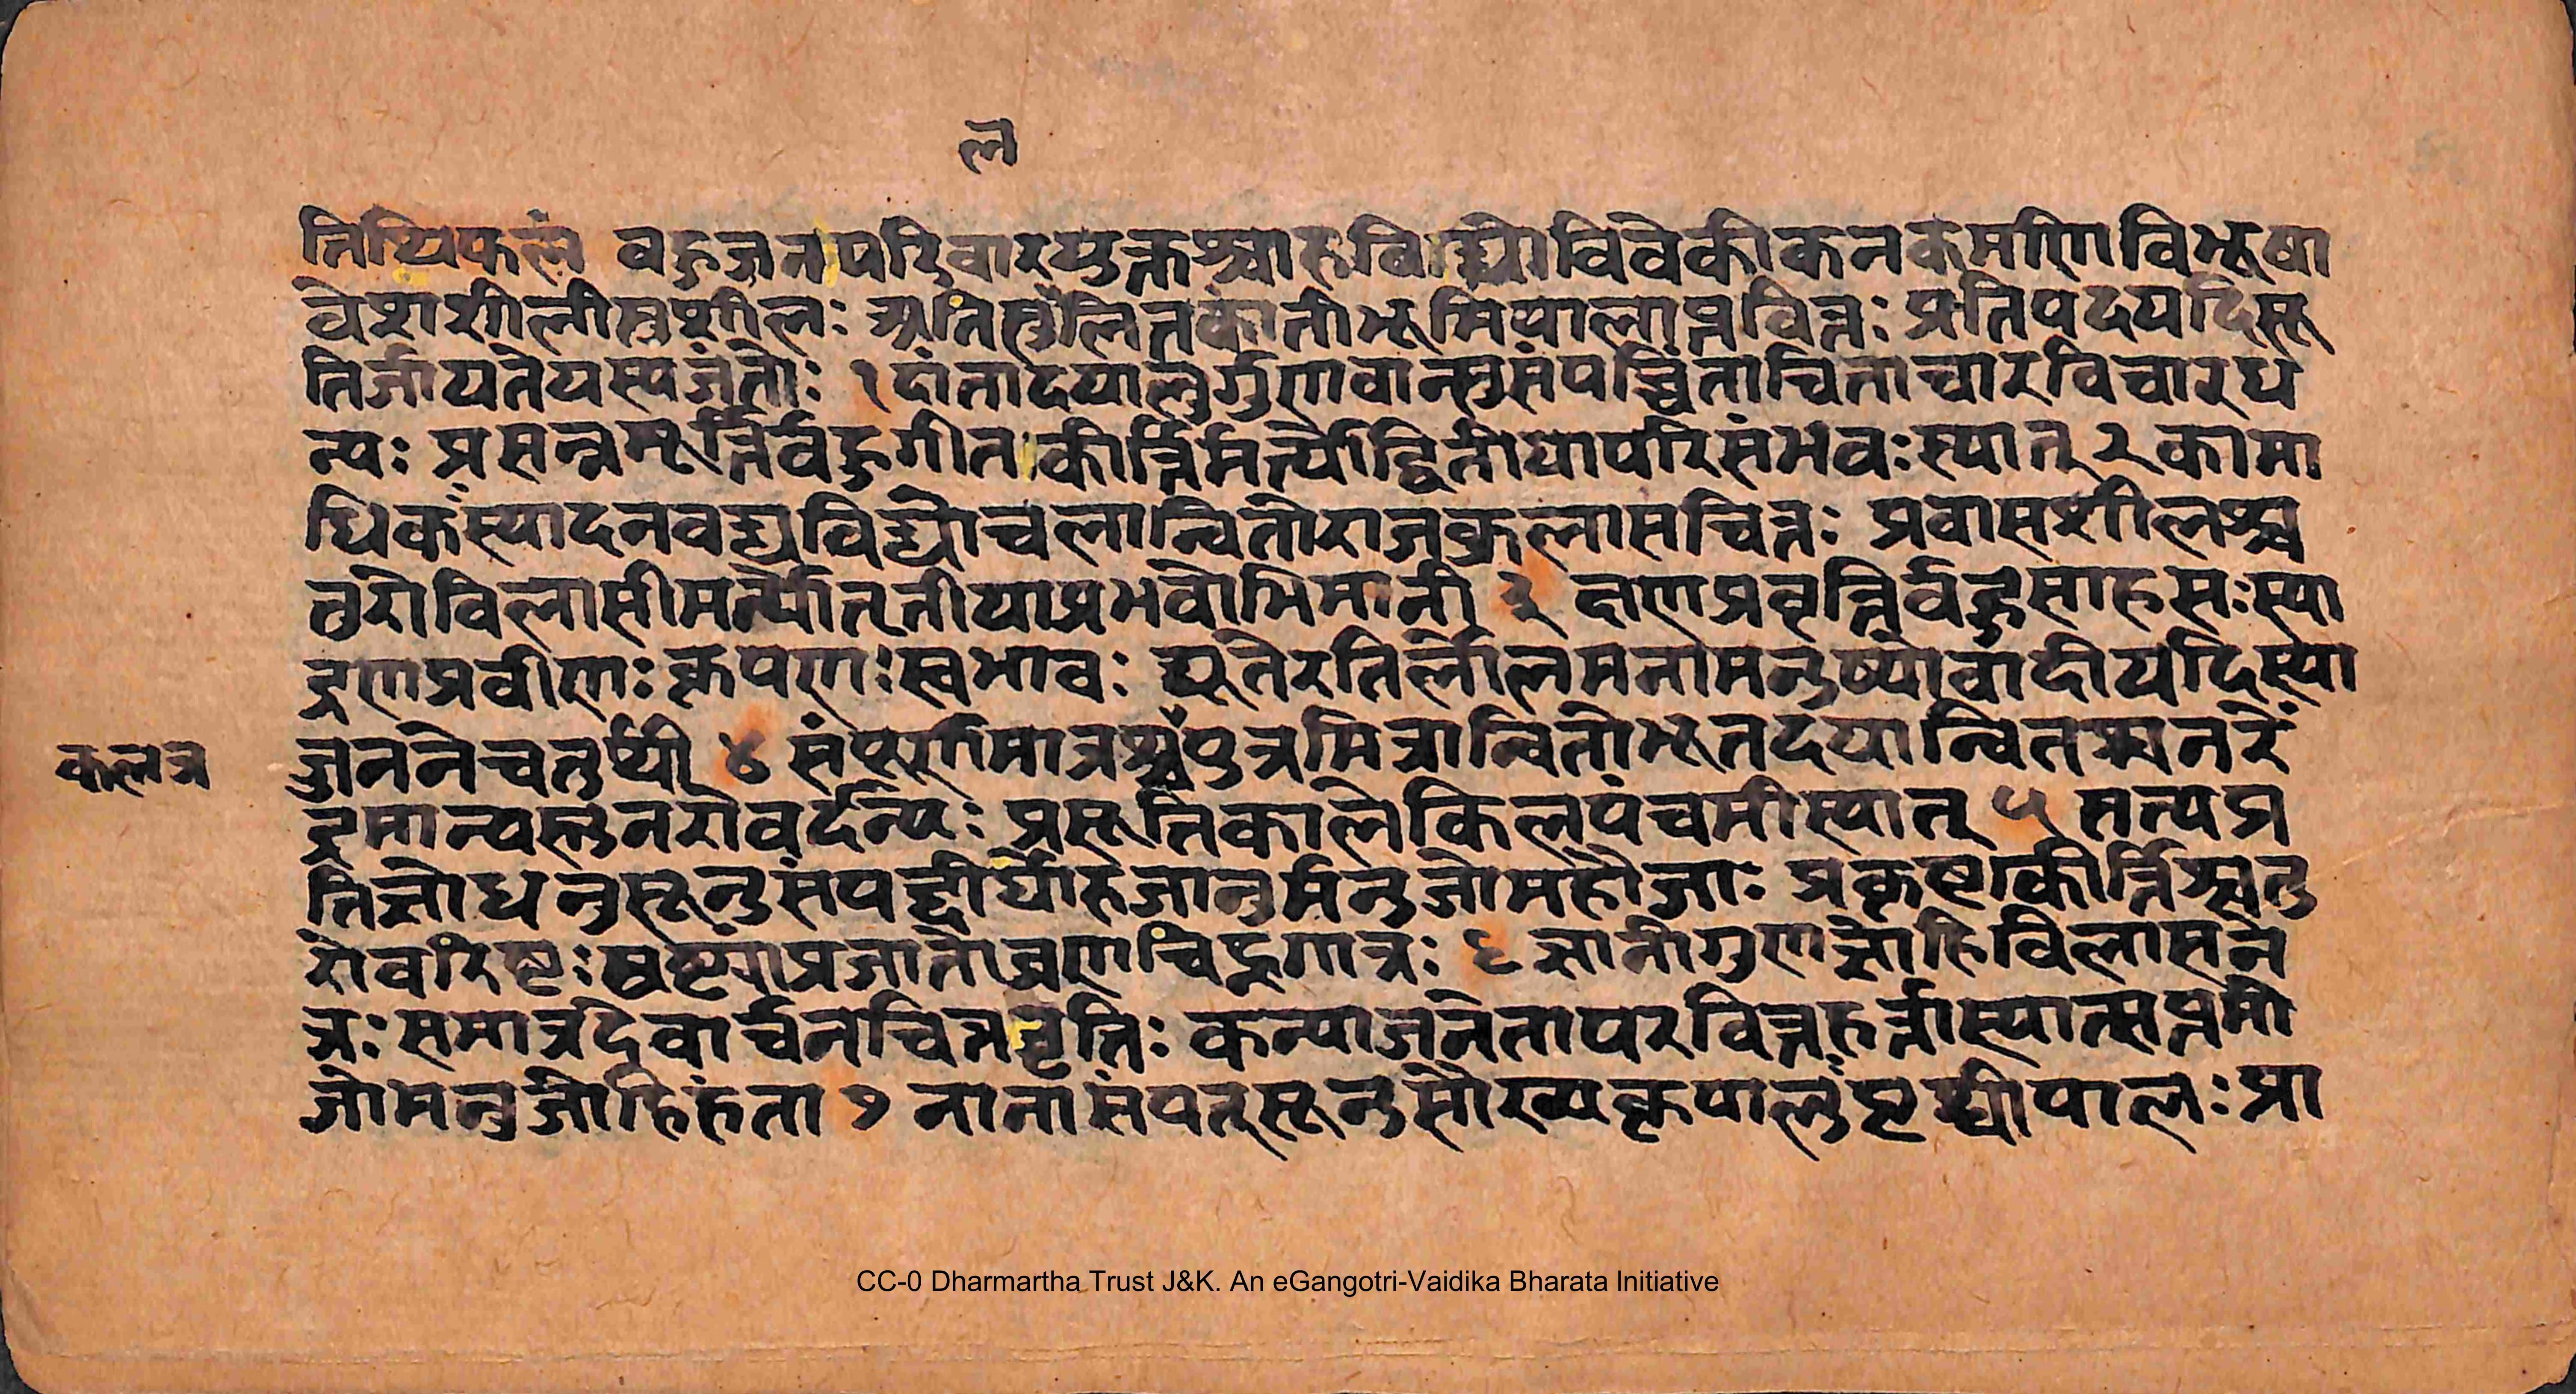 ल
तिथिफलं वहुजनपरिवारयुक्तश्चारुविद्योविवेकीकनकमणिविभूषा
वेशशीलीसुशीलः अतिसुललितकांतीभूमिपालाप्तवित्तः प्रतिपदयदिसू
तिर्जायतेयस्यजंतोः १ दांतादयालुर्गुणवान्सुसंपच्चिंताचिताचारविचारध
न्यः प्रसन्नमूर्त्तिर्वहुगीतकीर्त्तिर्मर्त्योद्वितीयापरिसंभवःस्यात् २ कामा
धिकंस्यादनवद्यविद्योचलान्वितोराजकुलासचित्तः प्रवासशीलश्च
तरोविलासीमर्त्योतृतीयाप्रभवोभिमानी ३ दाणप्रवृत्तिर्वहुसाहसःस्या
द्रणप्रवीणःकृपणःस्वभावः द्यूतेरतिर्लोलमनामनुष्योवादीयदिस्या
ज्जननेचतुर्थी ४ संपूर्णमात्रश्चपुत्रमित्रान्वितोभूतदयान्वितश्चनरें
कलत्र
द्रमान्यस्तुनरोवदंन्यः प्रसूतिकालेकिलपंचमीस्यात् ५ सत्यप्र
तिज्ञोधनुसूनुसंपद्दीर्घोरुजानुर्मनुजोमहौजाः प्रकृष्टकीर्त्तिश्चतु
रोवरिष्टःषष्ट्यांप्रजातोव्रणचिह्नगात्रः ६ ज्ञानीगुणज्ञोहिविलासने
त्रः समात्रदेवार्चनचित्तवृत्तिः कन्याजनेतापरवित्तहर्त्तास्यात्सप्तमी
जोमनुजोहिहंता ७ नानासंपत्सूनुसौख्यकृपालुःपृथ्वीपालःप्रा
CC-0 Dharmartha Trust J&K. An eGangotri-Vaidika Bharata Initiative